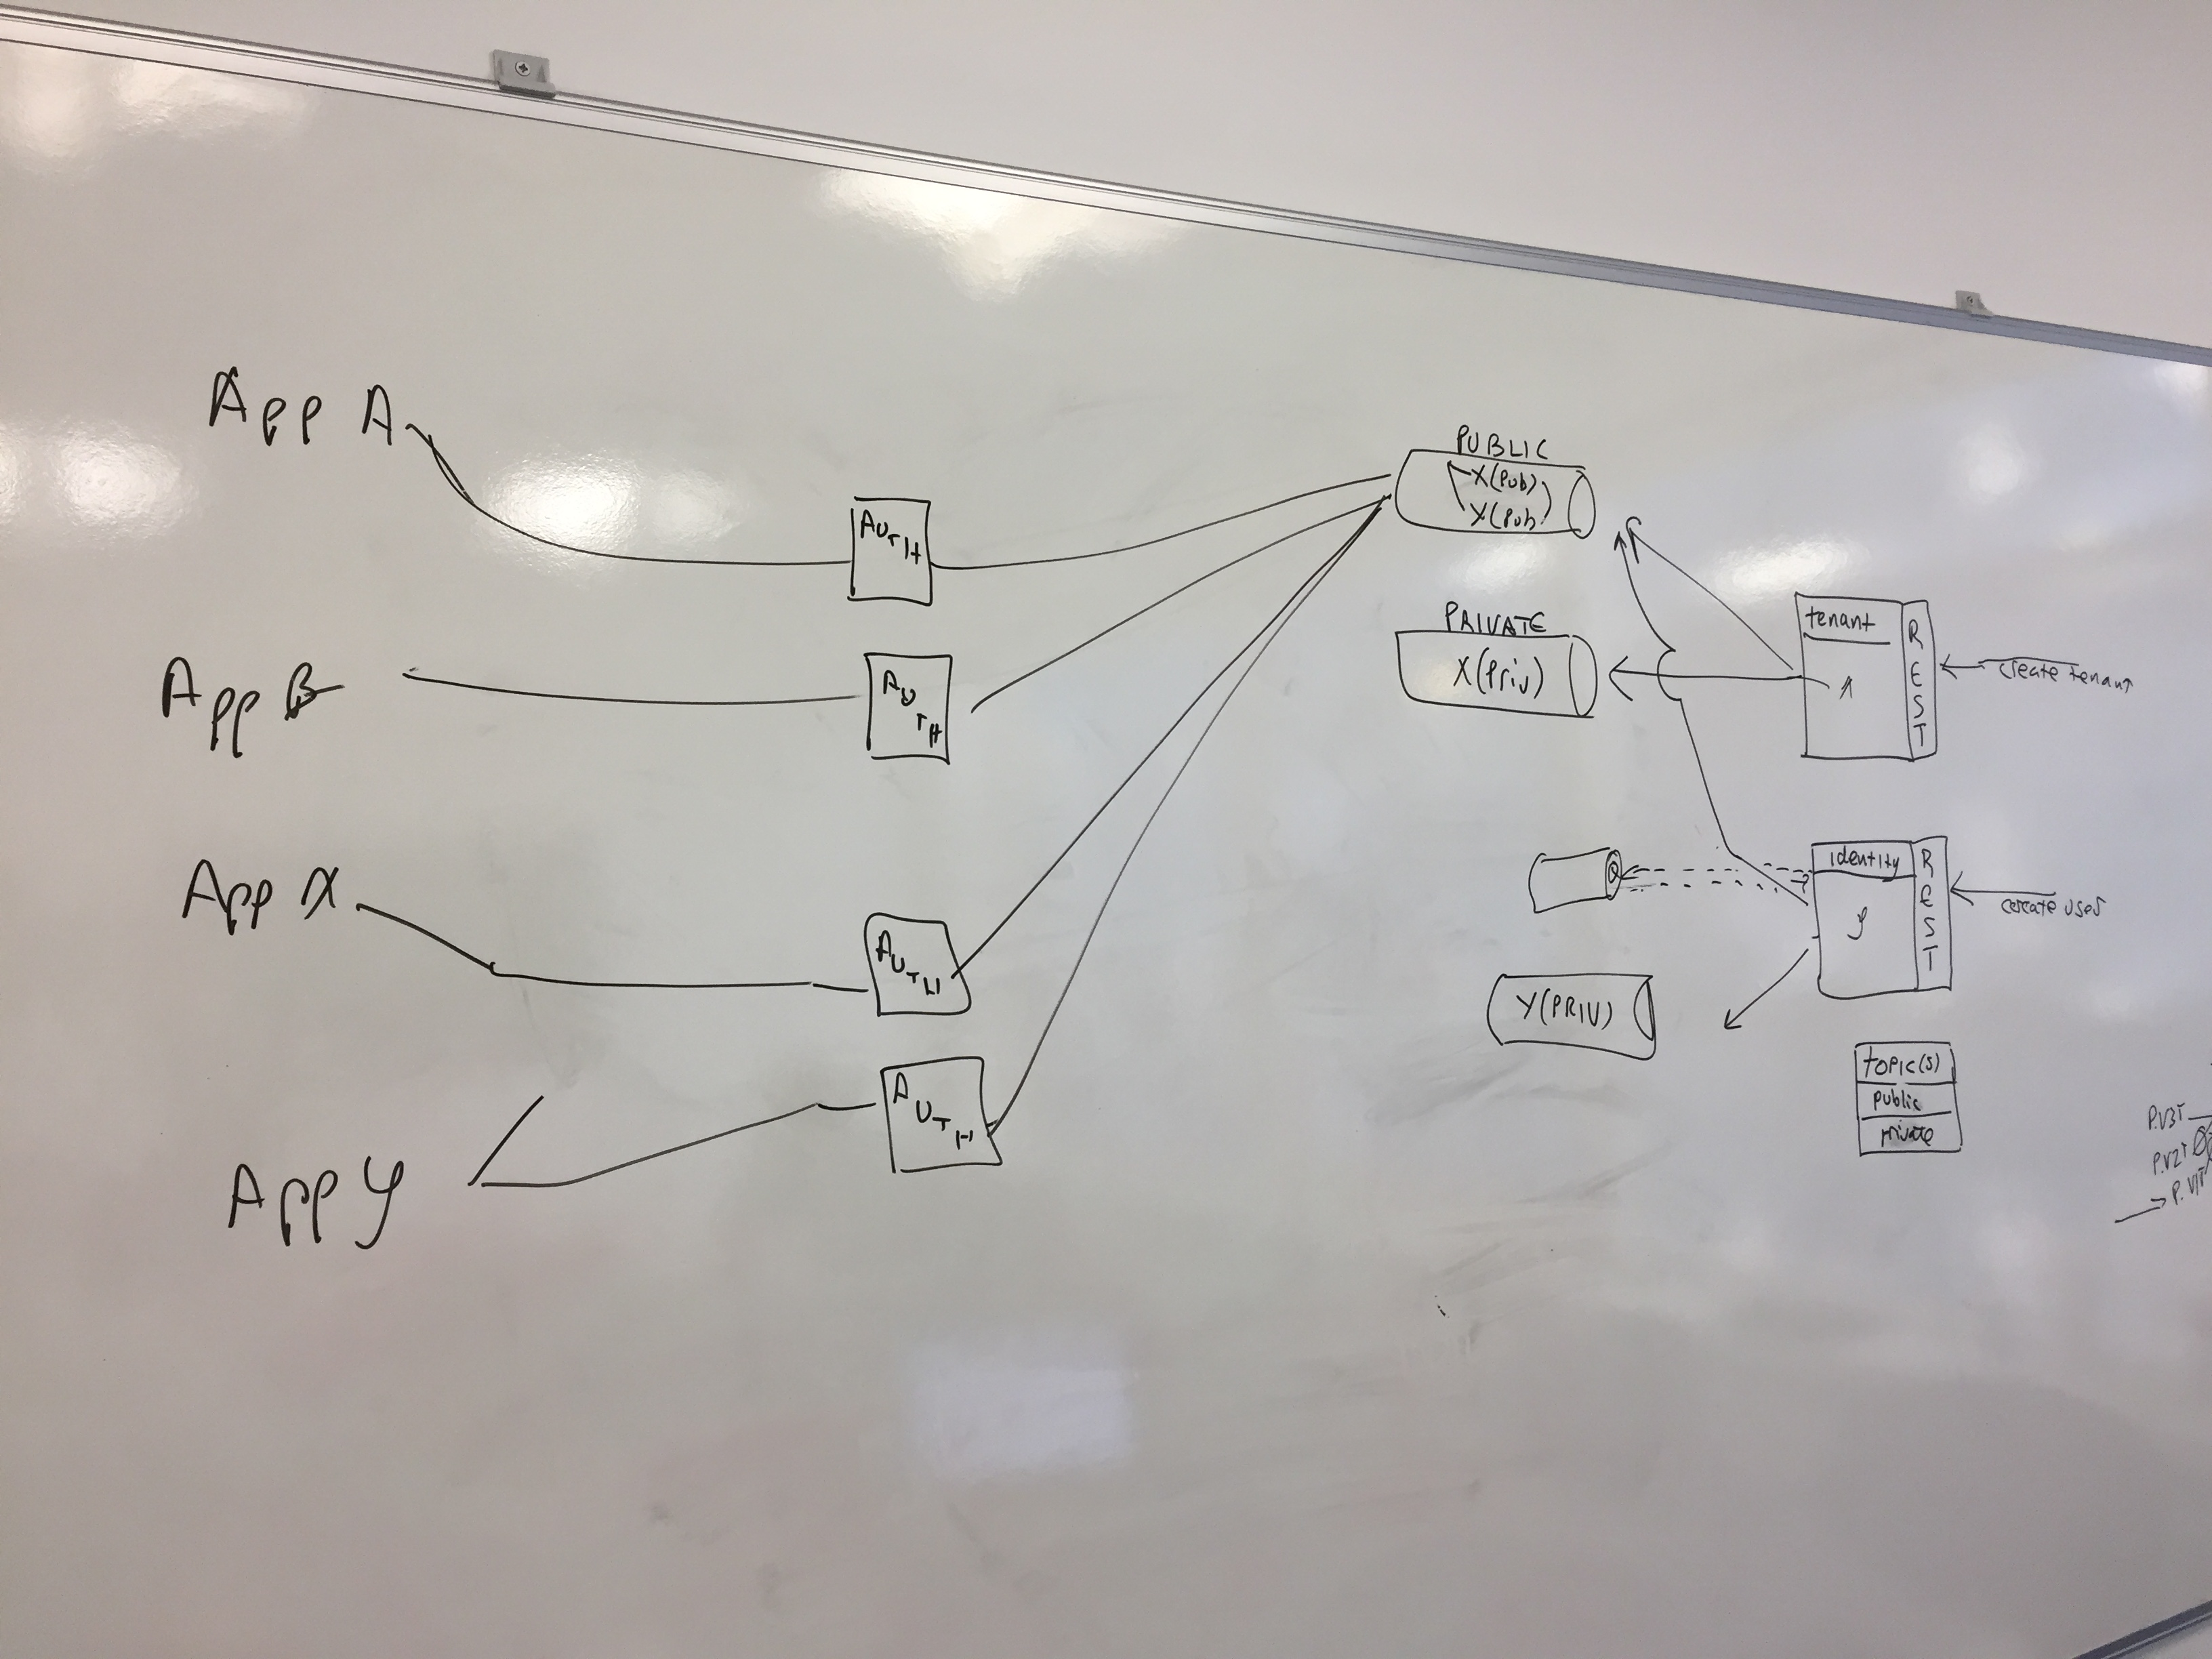 App A
AUTH
App B
AUTH
App X
AUTH
App Y
AUTH
PUBLIC
X(Pub)
Y(Pub)
PRIVATE
X(Priv)
Y(PRIV)
tenant
REST
create tenant
identity
REST
y
TOPIC(S)
public
private
P.V3T
P.V2T